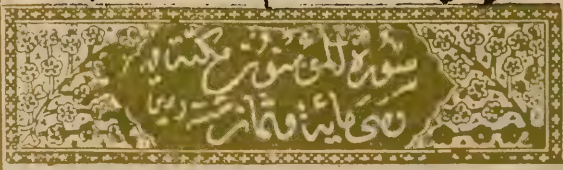 سورة المؤمنون مكية
وهي مائة وثمان عشرة